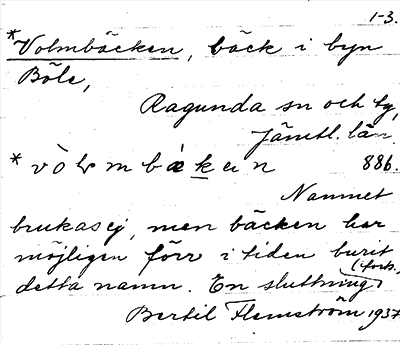 1-3.
*Volmbäcken, bäck i byn
Böle,
Ragunda sn och tg,
Jämtl. län.
886.
Namnet
brukas ej, men bäcken har
möjligen förr i tiden burit
detta namn. En sluttning
(forts.)
Bertil Flemström 1937